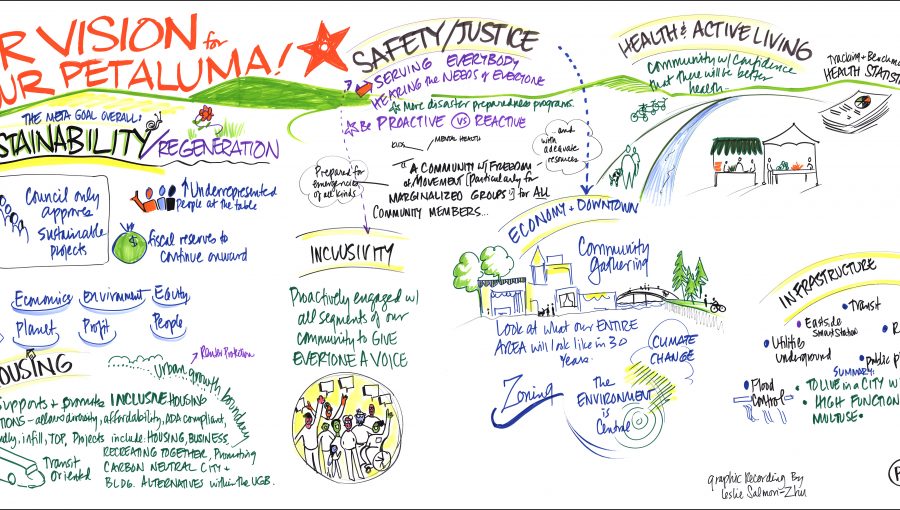 R VISION for
UR PETALUMA!
THE META GOAL OVERALL:
STAINABILITY/REGENERATION
Council only
approves
sustainable
projects
↑Underrepresented
people at the table
$
fiscal reserves to
continue onward
Economics Environment Equity
Planet Profit People
OUSING
Urban growth boundary
upports + promote INCLUSIVE HOUSING
TIONS - allows diversity, affordability, ADA compliant,
dly, infill, TOP, Projects include: HOUSING, BUSINESS,
RECREATING TOGETHER, Promoting
CARBON NEUTRAL CITY +
BLDG. ALTERNATIVES within the UGB.
Transit
Oriented
SAFETY/JUSTICE
SERVING EVERYBODY
HEARING THE NEEDS of EVERYONE
More disaster preparedness programs.
Be PROACTIVE VS REACTIVE
KIDS / MENTAL HEALTH
and
with
adequate
resources
Prepared for
emergencies
of all kinds
"A COMMUNITY W/ FREEDOM
of MOVEMENT [Particularly for
MARGINALIZED GROUPS!] for ALL
COMMUNITY MEMBERS...
INCLUSIVITY
Proactively engaged w/
all segments of our
community to GIVE
EVERYONE A VOICE
ECONOMY + DOWNTOWN
Community
gathering
Look at what our ENTIRE
AREA will look like in 30
years.
CLIMATE
CHANGE
Zoning
The
ENVIRONMENT
is
Central
HEALTH & ACTIVE LIVING
Community w/ Confidence
that there will be better
health-
Tracking + Benchm
HEALTH STATIST
INFRASTRUCTURE
• Transit
• Eastside
SmartStation
• R
• Utilities
underground
• public p
• Flood
Control
SUMMARY:
• TO LIVE in a CITY w
HIGH FUNCTION
MULTIUSE •
graphic Recording By
Leslie Salmon-Zhu